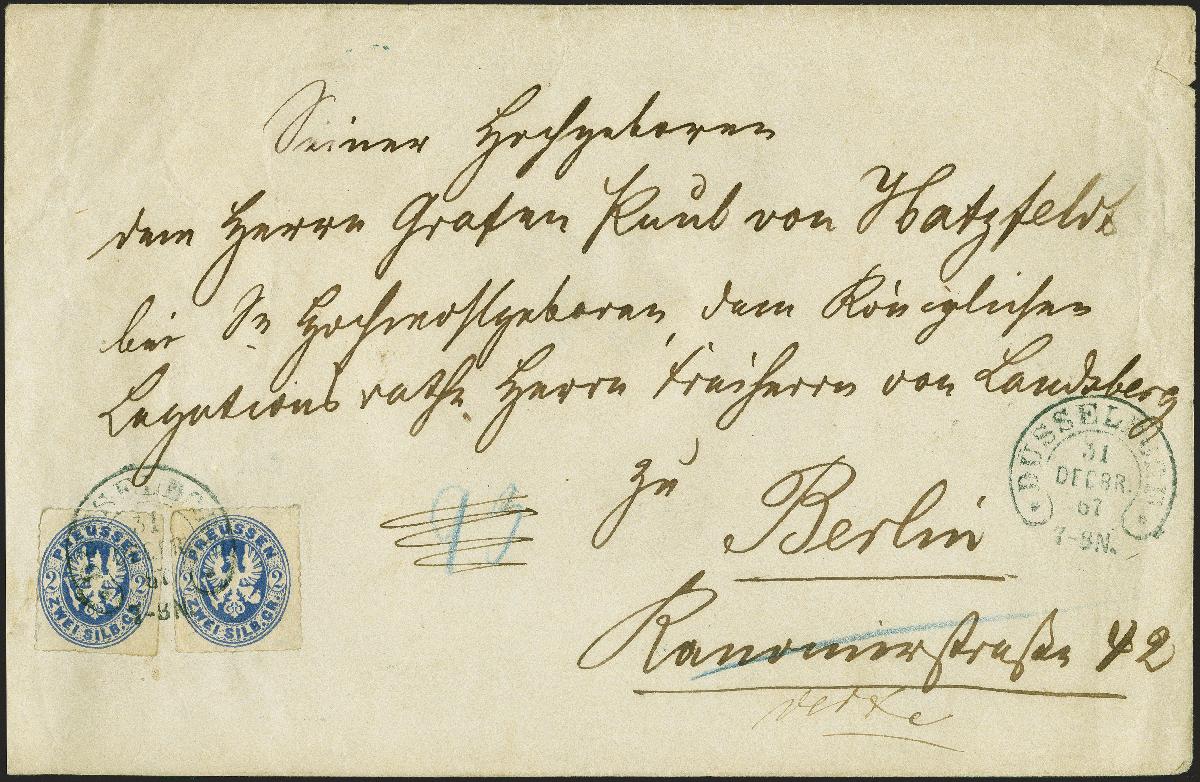 Seiner Hochgeboren
dem Herrn Grafen Paul von Hatzfeldt
bei Sr Hochwohlgeboren, dem Königlichen
Legationsrathe Herrn Freiherrn von Landsberg
zu
Berlin
Kanonierstraße 42
DÜSSELDORF
31
DECBR.
67
7-8N.
31
67
7-8N.
PREUSSEN
2 2
ZWEI SILB.GR.
PREUSSEN
2 2
ZWEI SILB.GR.